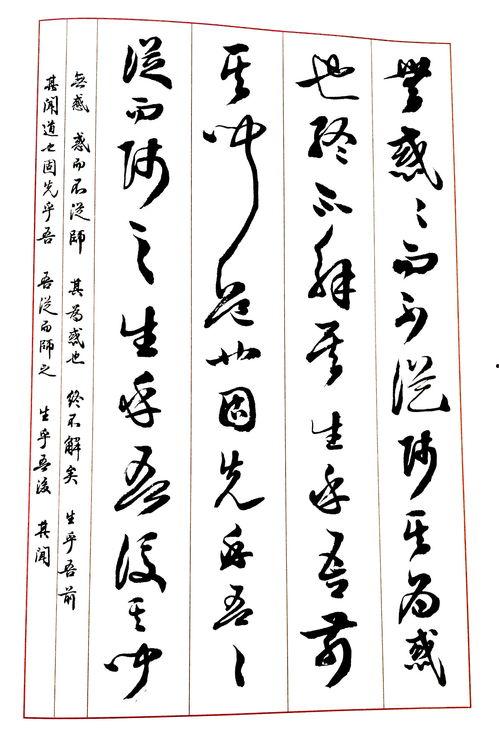 無惑〻而不從師其為惑
也終不解矣生乎吾前
其聞道也固先乎吾〻
從而師之生乎吾後其聞
無惑 惑而不從師 其為惑也 終不解矣 生乎吾前
其聞道也固先乎吾 吾從而師之 生乎吾後 其聞